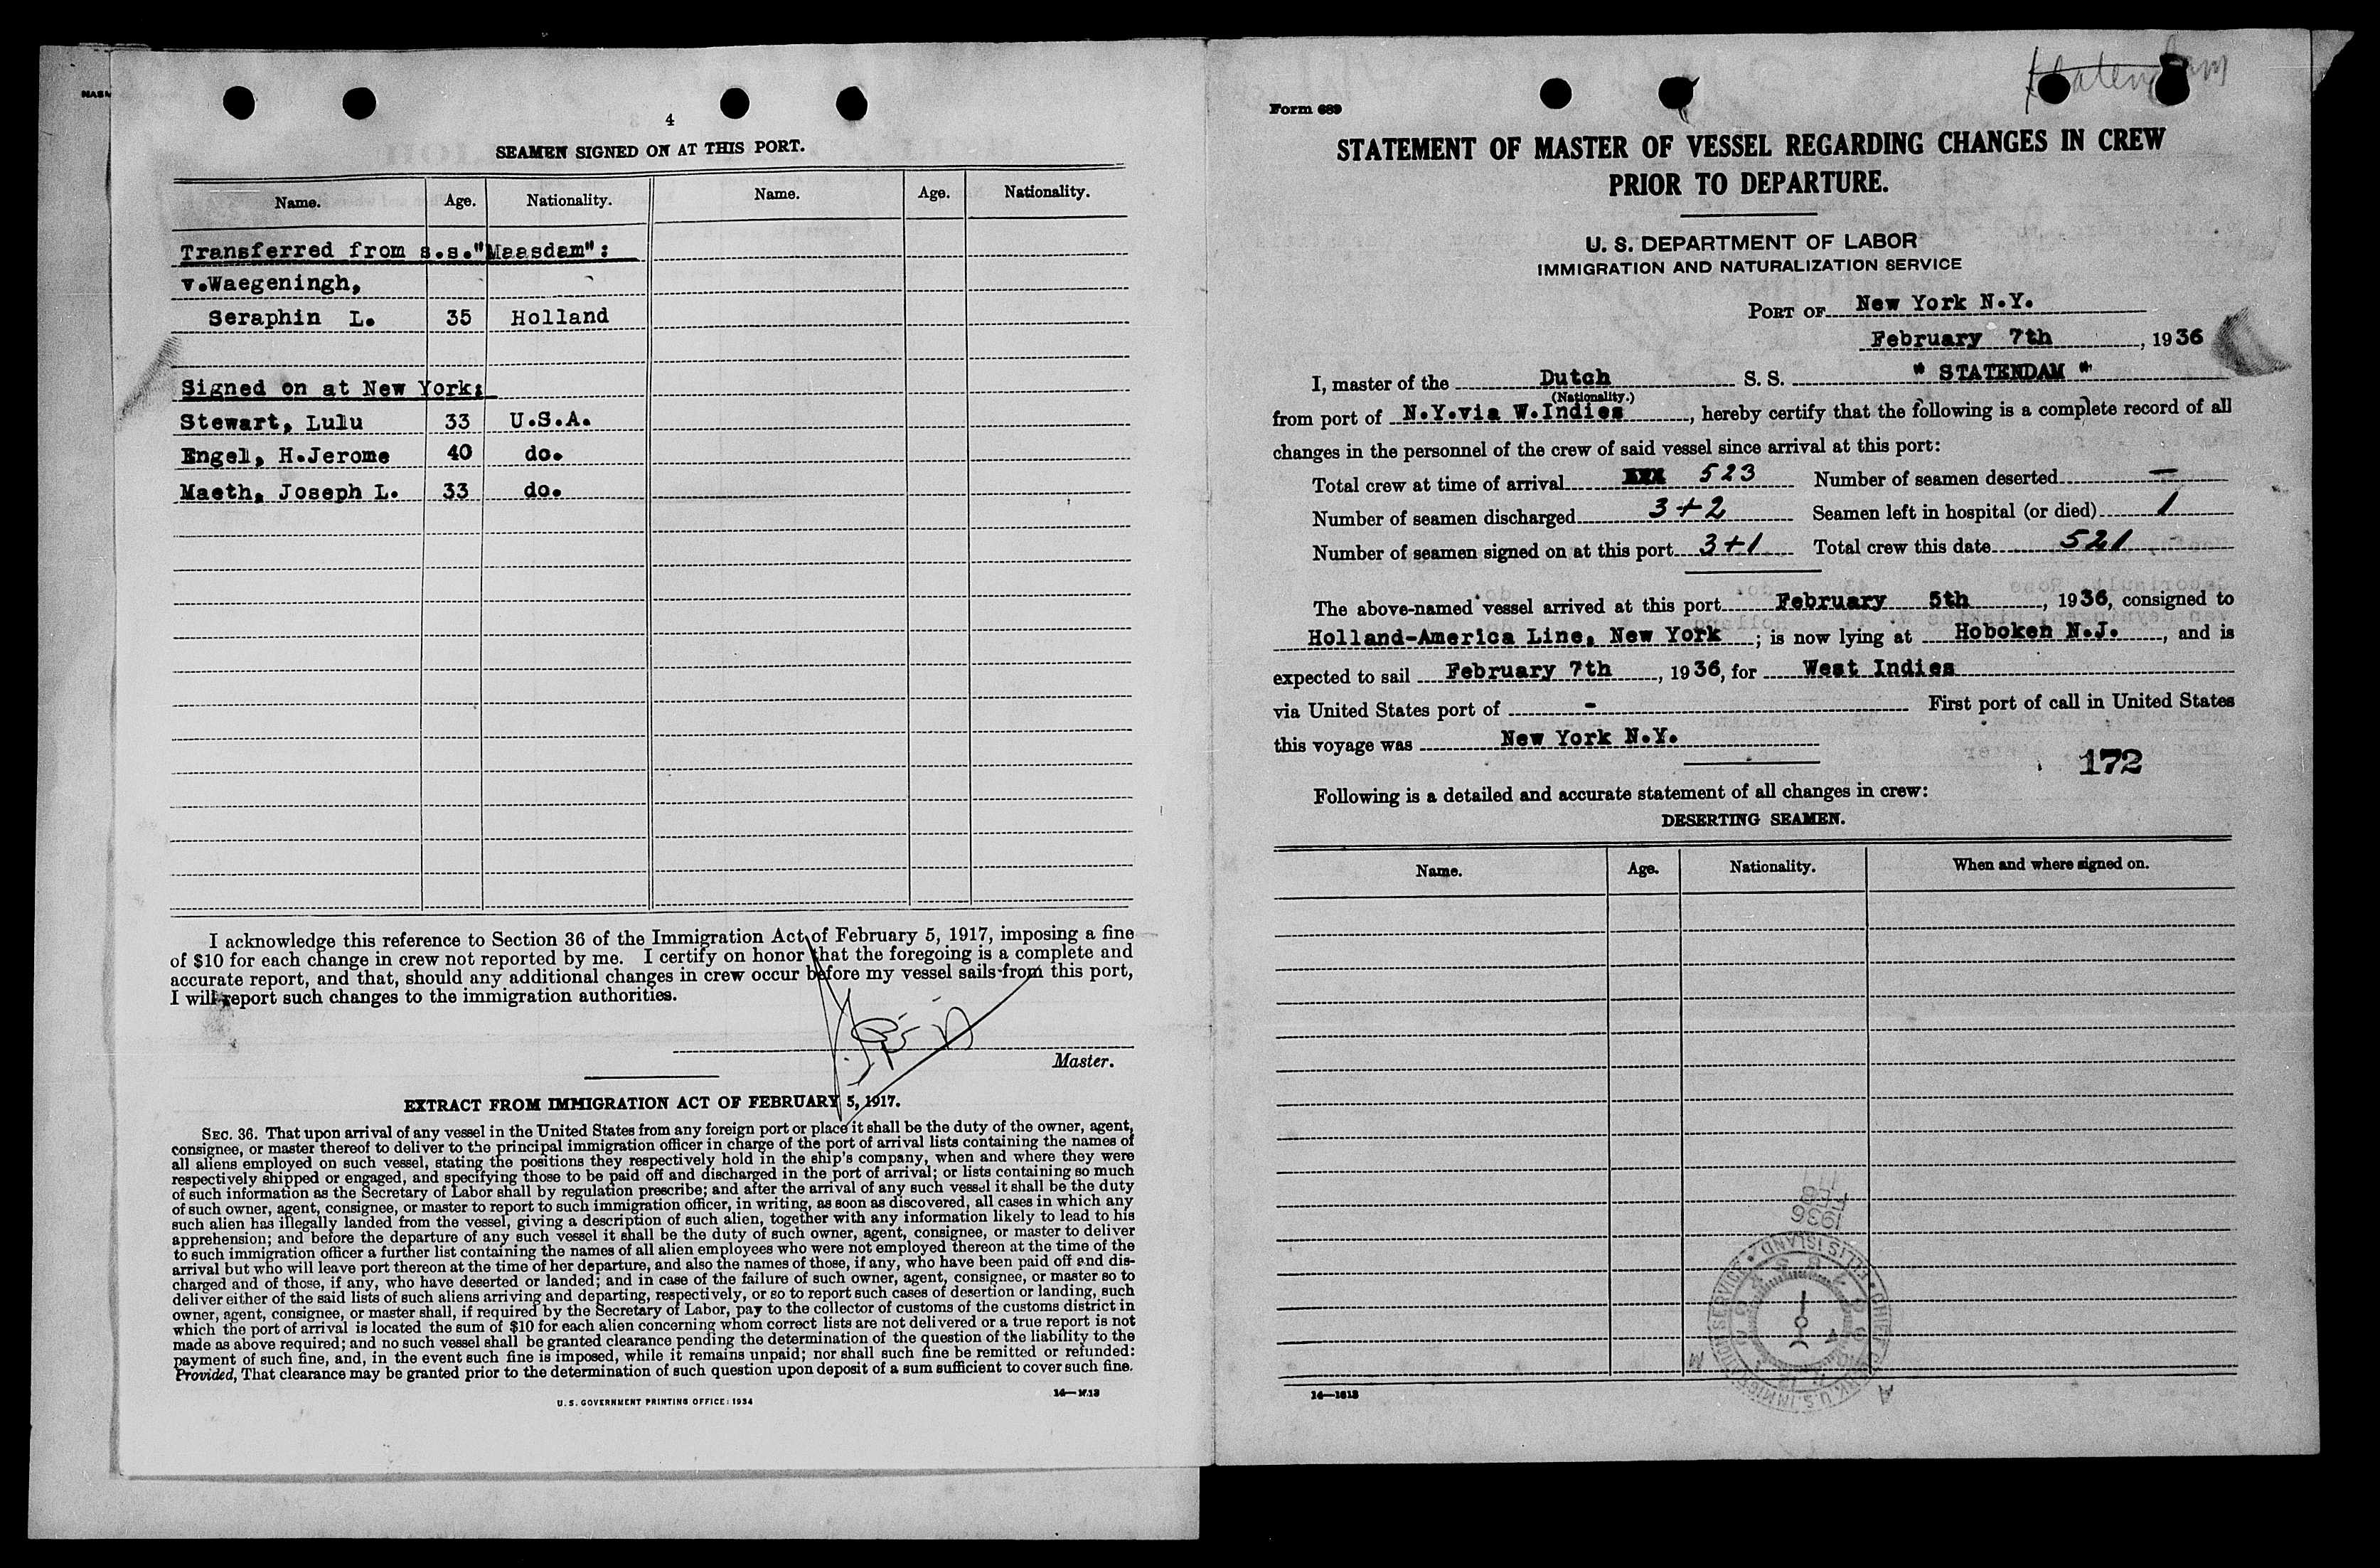 4
SEAMEN SIGNED ON AT THIS PORT.
Name. Age. Nationality. Name. Age. Nationality.
Transferred from s.s."Maasdam":
v.Waegeningh,
Seraphin L. 35 Holland
Signed on at New York:
Stewart, Lulu 33 U.S.A.
Engel, H.Jerome 40 do.
Maeth, Joseph L. 33 do.
I acknowledge this reference to Section 36 of the Immigration Act of February 5, 1917, imposing a fine
of $10 for each change in crew not reported by me. I certify on honor that the foregoing is a complete and
accurate report, and that, should any additional changes in crew occur before my vessel sails from this port,
I will report such changes to the immigration authorities.
Master.
EXTRACT FROM IMMIGRATION ACT OF FEBRUARY 5, 1917.
SEC. 36. That upon arrival of any vessel in the United States from any foreign port or place it shall be the duty of the owner, agent,
consignee, or master thereof to deliver to the principal immigration officer in charge of the port of arrival lists containing the names of
all aliens employed on such vessel, stating the positions they respectively hold in the ship's company, when and where they were
respectively shipped or engaged, and specifying those to be paid off and discharged in the port of arrival; or lists containing so much
of such information as the Secretary of Labor shall by regulation prescribe; and after the arrival of any such vessel it shall be the duty
of such owner, agent, consignee, or master to report to such immigration officer, in writing, as soon as discovered, all cases in which any
such alien has illegally landed from the vessel, giving a description of such alien, together with any information likely to lead to his
apprehension; and before the departure of any such vessel it shall be the duty of such owner, agent, consignee, or master to deliver
to such immigration officer a further list containing the names of all alien employees who were not employed thereon at the time of the
arrival but who will leave port thereon at the time of her departure, and also the names of those, if any, who have been paid off and dis-
charged and of those, if any, who have deserted or landed; and in case of the failure of such owner, agent, consignee, or master so to
deliver either of the said lists of such aliens arriving and departing, respectively, or so to report such cases of desertion or landing, such
owner, agent, consignee, or master shall, if required by the Secretary of Labor, pay to the collector of customs of the customs district in
which the port of arrival is located the sum of $10 for each alien concerning whom correct lists are not delivered or a true report is not
made as above required; and no such vessel shall be granted clearance pending the determination of the question of the liability to the
payment of such fine, and, in the event such fine is imposed, while it remains unpaid; nor shall such fine be remitted or refunded:
Provided, That clearance may be granted prior to the determination of such question upon deposit of a sum sufficient to cover such fine.
U.S. GOVERNMENT PRINTING OFFICE: 1934
Statendam
Form 689
STATEMENT OF MASTER OF VESSEL REGARDING CHANGES IN CREW
PRIOR TO DEPARTURE.
U. S. DEPARTMENT OF LABOR
IMMIGRATION AND NATURALIZATION SERVICE
PORT OF New York N.Y.
February 7th, 1936
I, master of the Dutch S. S. " STATENDAM "
(Nationality.)
from port of N.Y.via W.Indies, hereby certify that the following is a complete record of all
changes in the personnel of the crew of said vessel since arrival at this port:
Total crew at time of arrival 523 Number of seamen deserted —
Number of seamen discharged 3+2 Seamen left in hospital (or died) 1
Number of seamen signed on at this port 3+1 Total crew this date 521
The above-named vessel arrived at this port February 5th, 1936, consigned to
Holland-America Line, New York; is now lying at Hoboken N.J., and is
expected to sail February 7th, 1936, for West Indies
via United States port of - First port of call in United States
this voyage was New York N.Y.
172
Following is a detailed and accurate statement of all changes in crew:
DESERTING SEAMEN.
Name. Age. Nationality. When and where signed on.
1936
FEB
ELLIS ISLAND
14—1613